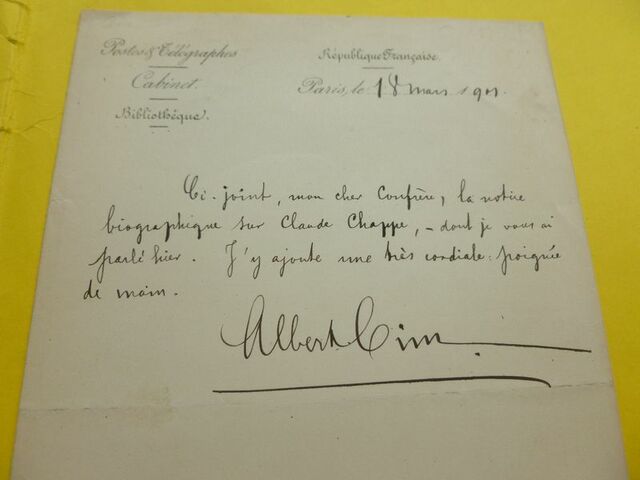 Postes & Télégraphes
Cabinet.
Bibliothèque.
République Française.
Paris, le 18 mars 1901.
Ci-joint, mon cher Confrère, la notice
biographique sur Claude Chappe, – dont je vous ai
parlé hier. J'y ajoute une très cordiale poignée
de main.
Albert Cim